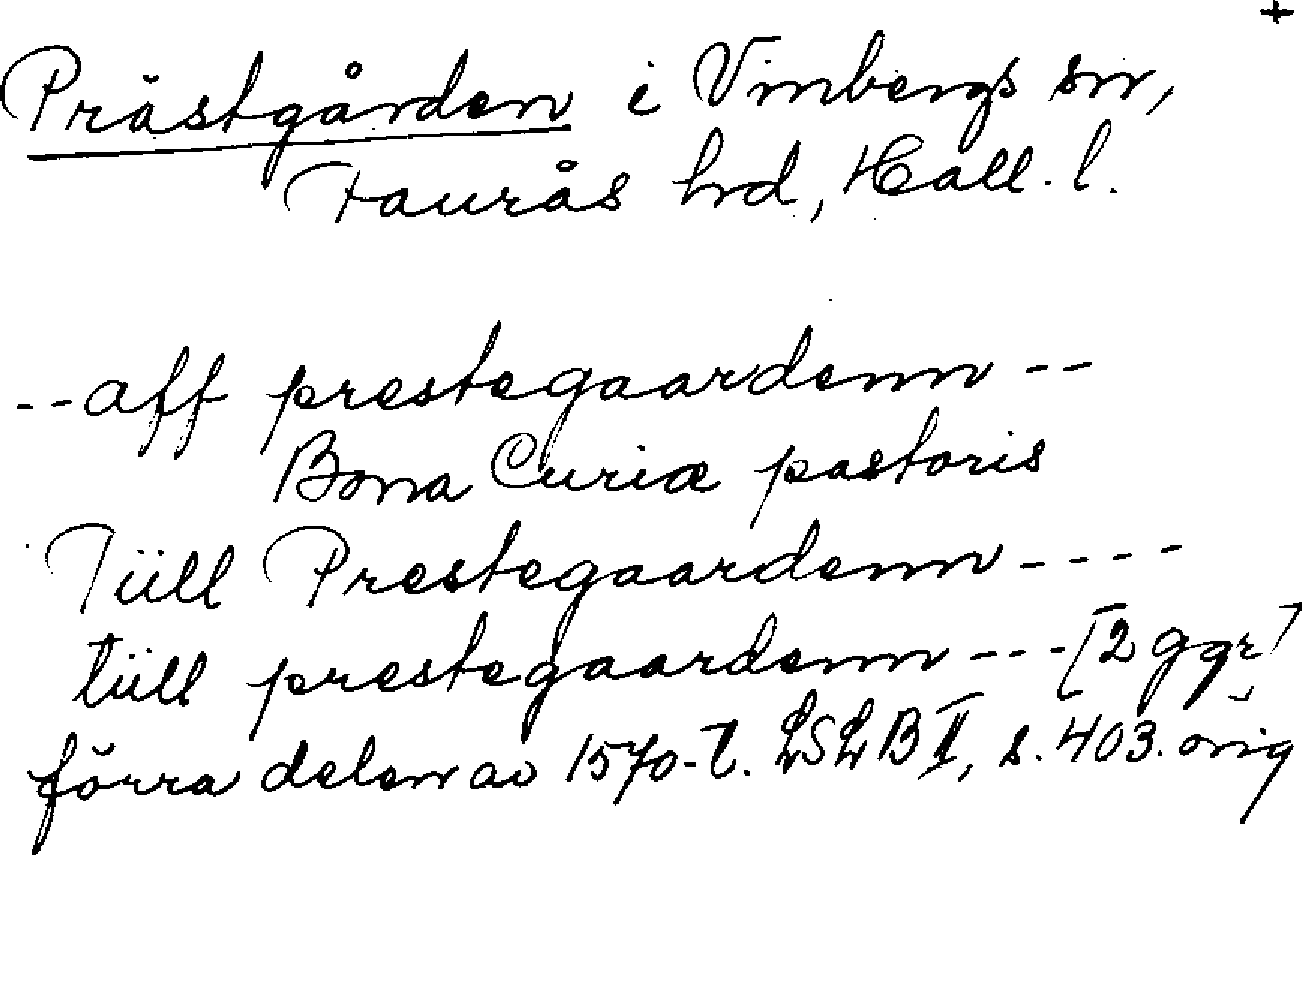 +
Prästgården i Vinbergs sn,
Faurås hd, Hall. l.
-- aff prestegaardenn --
Bona Curiæ pastoris
Tüll Prestegaardenn ----
tüll prestegaardenn --- [2 ggr]
förra delen av 1570-t. LSLB II, s. 403. orig